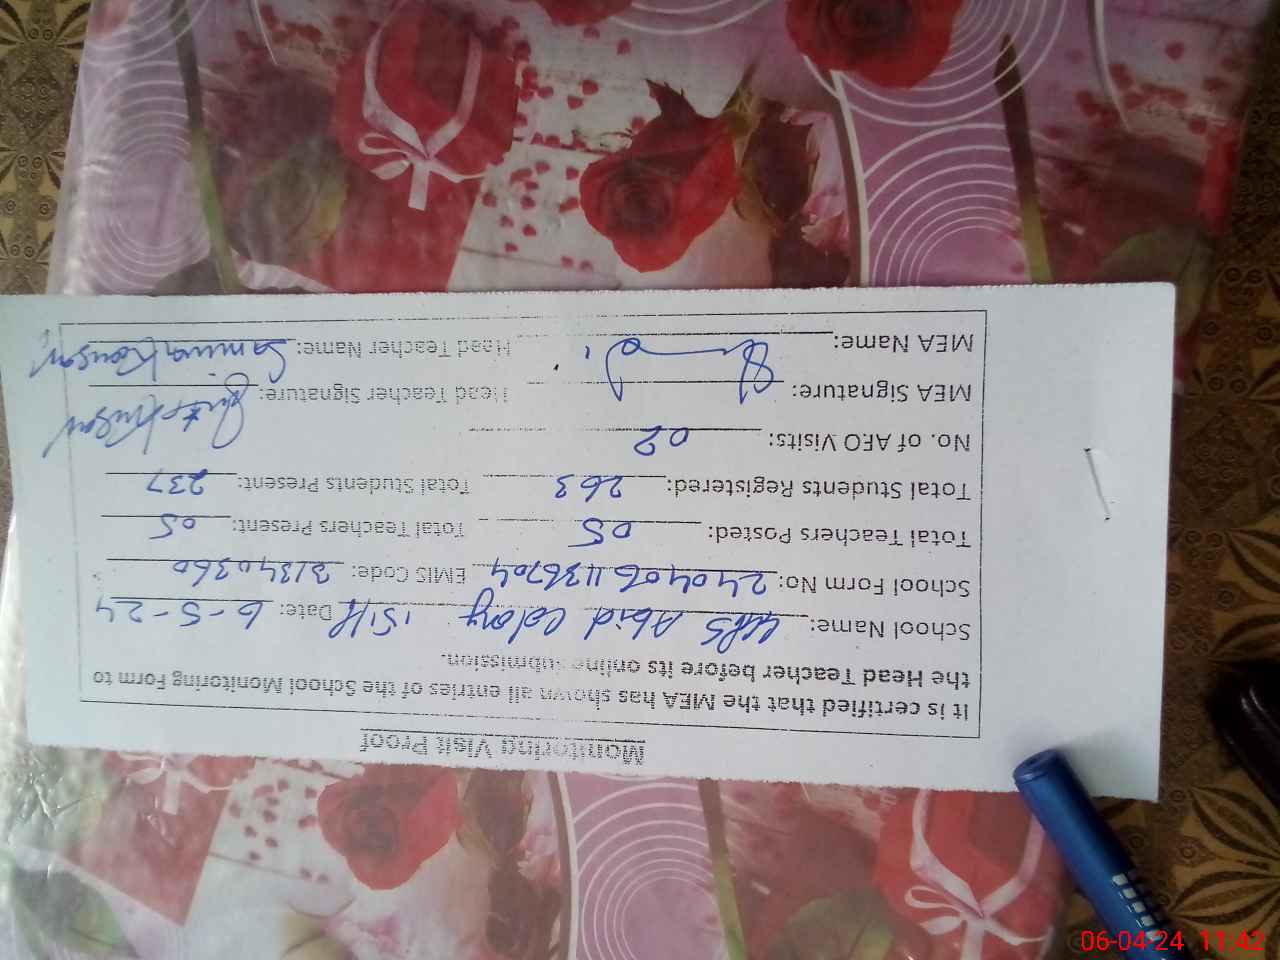 Monitoring Visit Proof
It is certified that the MEA has shown all entries of the School Monitoring Form to
the Head Teacher before its online submission.
School Name: Abid Colony 15/1 Date: 6-5-24
School Form No: EMIS Code: 31340360
Total Teachers Posted: 05 Total Teachers Present: 05
Total Students Registered: 263 Total Students Present: 237
No. of AEO Visits: 02
MEA Signature: Head Teacher Signature:
MEA Name: Head Teacher Name: Samina Kousar
06-04-24 11:42